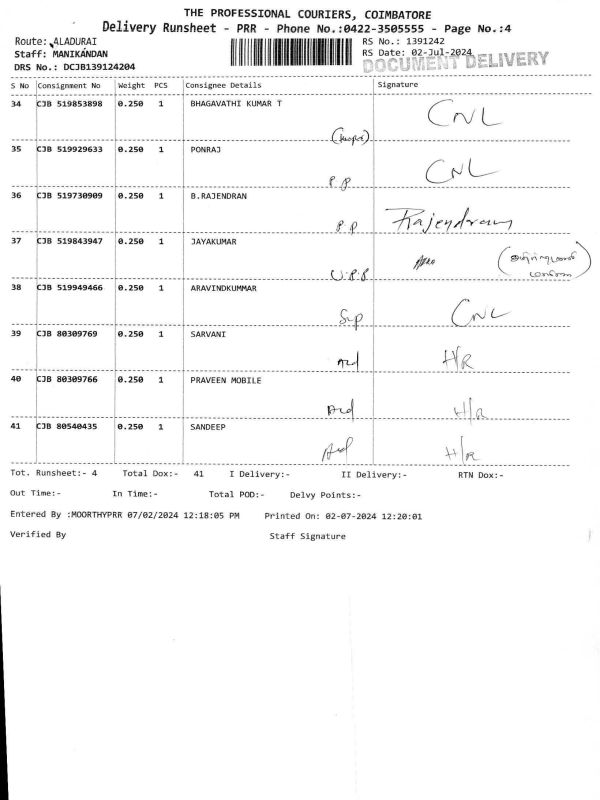 THE PROFESSIONAL COURIERS, COIMBATORE
Delivery Runsheet - PRR - Phone No.:0422-3505555 - Page No.:4
Route: ALADURAI
RS No.: 1391242
Staff: MANIKANDAN
RS Date: 02-Jul-2024
DRS No.: DCJB139124204
DOCUMENT DELIVERY
S No Consignment No Weight PCS Consignee Details Signature
34 CJB 519853898 0.250 1 BHAGAVATHI KUMAR T CNL
35 CJB 519929633 0.250 1 PONRAJ CNL
P.P
36 CJB 519730909 0.250 1 B.RAJENDRAN Rajendran
P.P
37 CJB 519843947 0.250 1 JAYAKUMAR
U.P.P
38 CJB 519949466 0.250 1 ARAVINDKUMMAR CNL
39 CJB 80309769 0.250 1 SARVANI H/R
40 CJB 80309766 0.250 1 PRAVEEN MOBILE H/R
41 CJB 80540435 0.250 1 SANDEEP H/R
Tot. Runsheet:- 4 Total Dox:- 41 I Delivery:- II Delivery:- RTN Dox:-
Out Time:- In Time:- Total POD:- Delvy Points:-
Entered By :MOORTHYPRR 07/02/2024 12:18:05 PM Printed On: 02-07-2024 12:20:01
Verified By Staff Signature